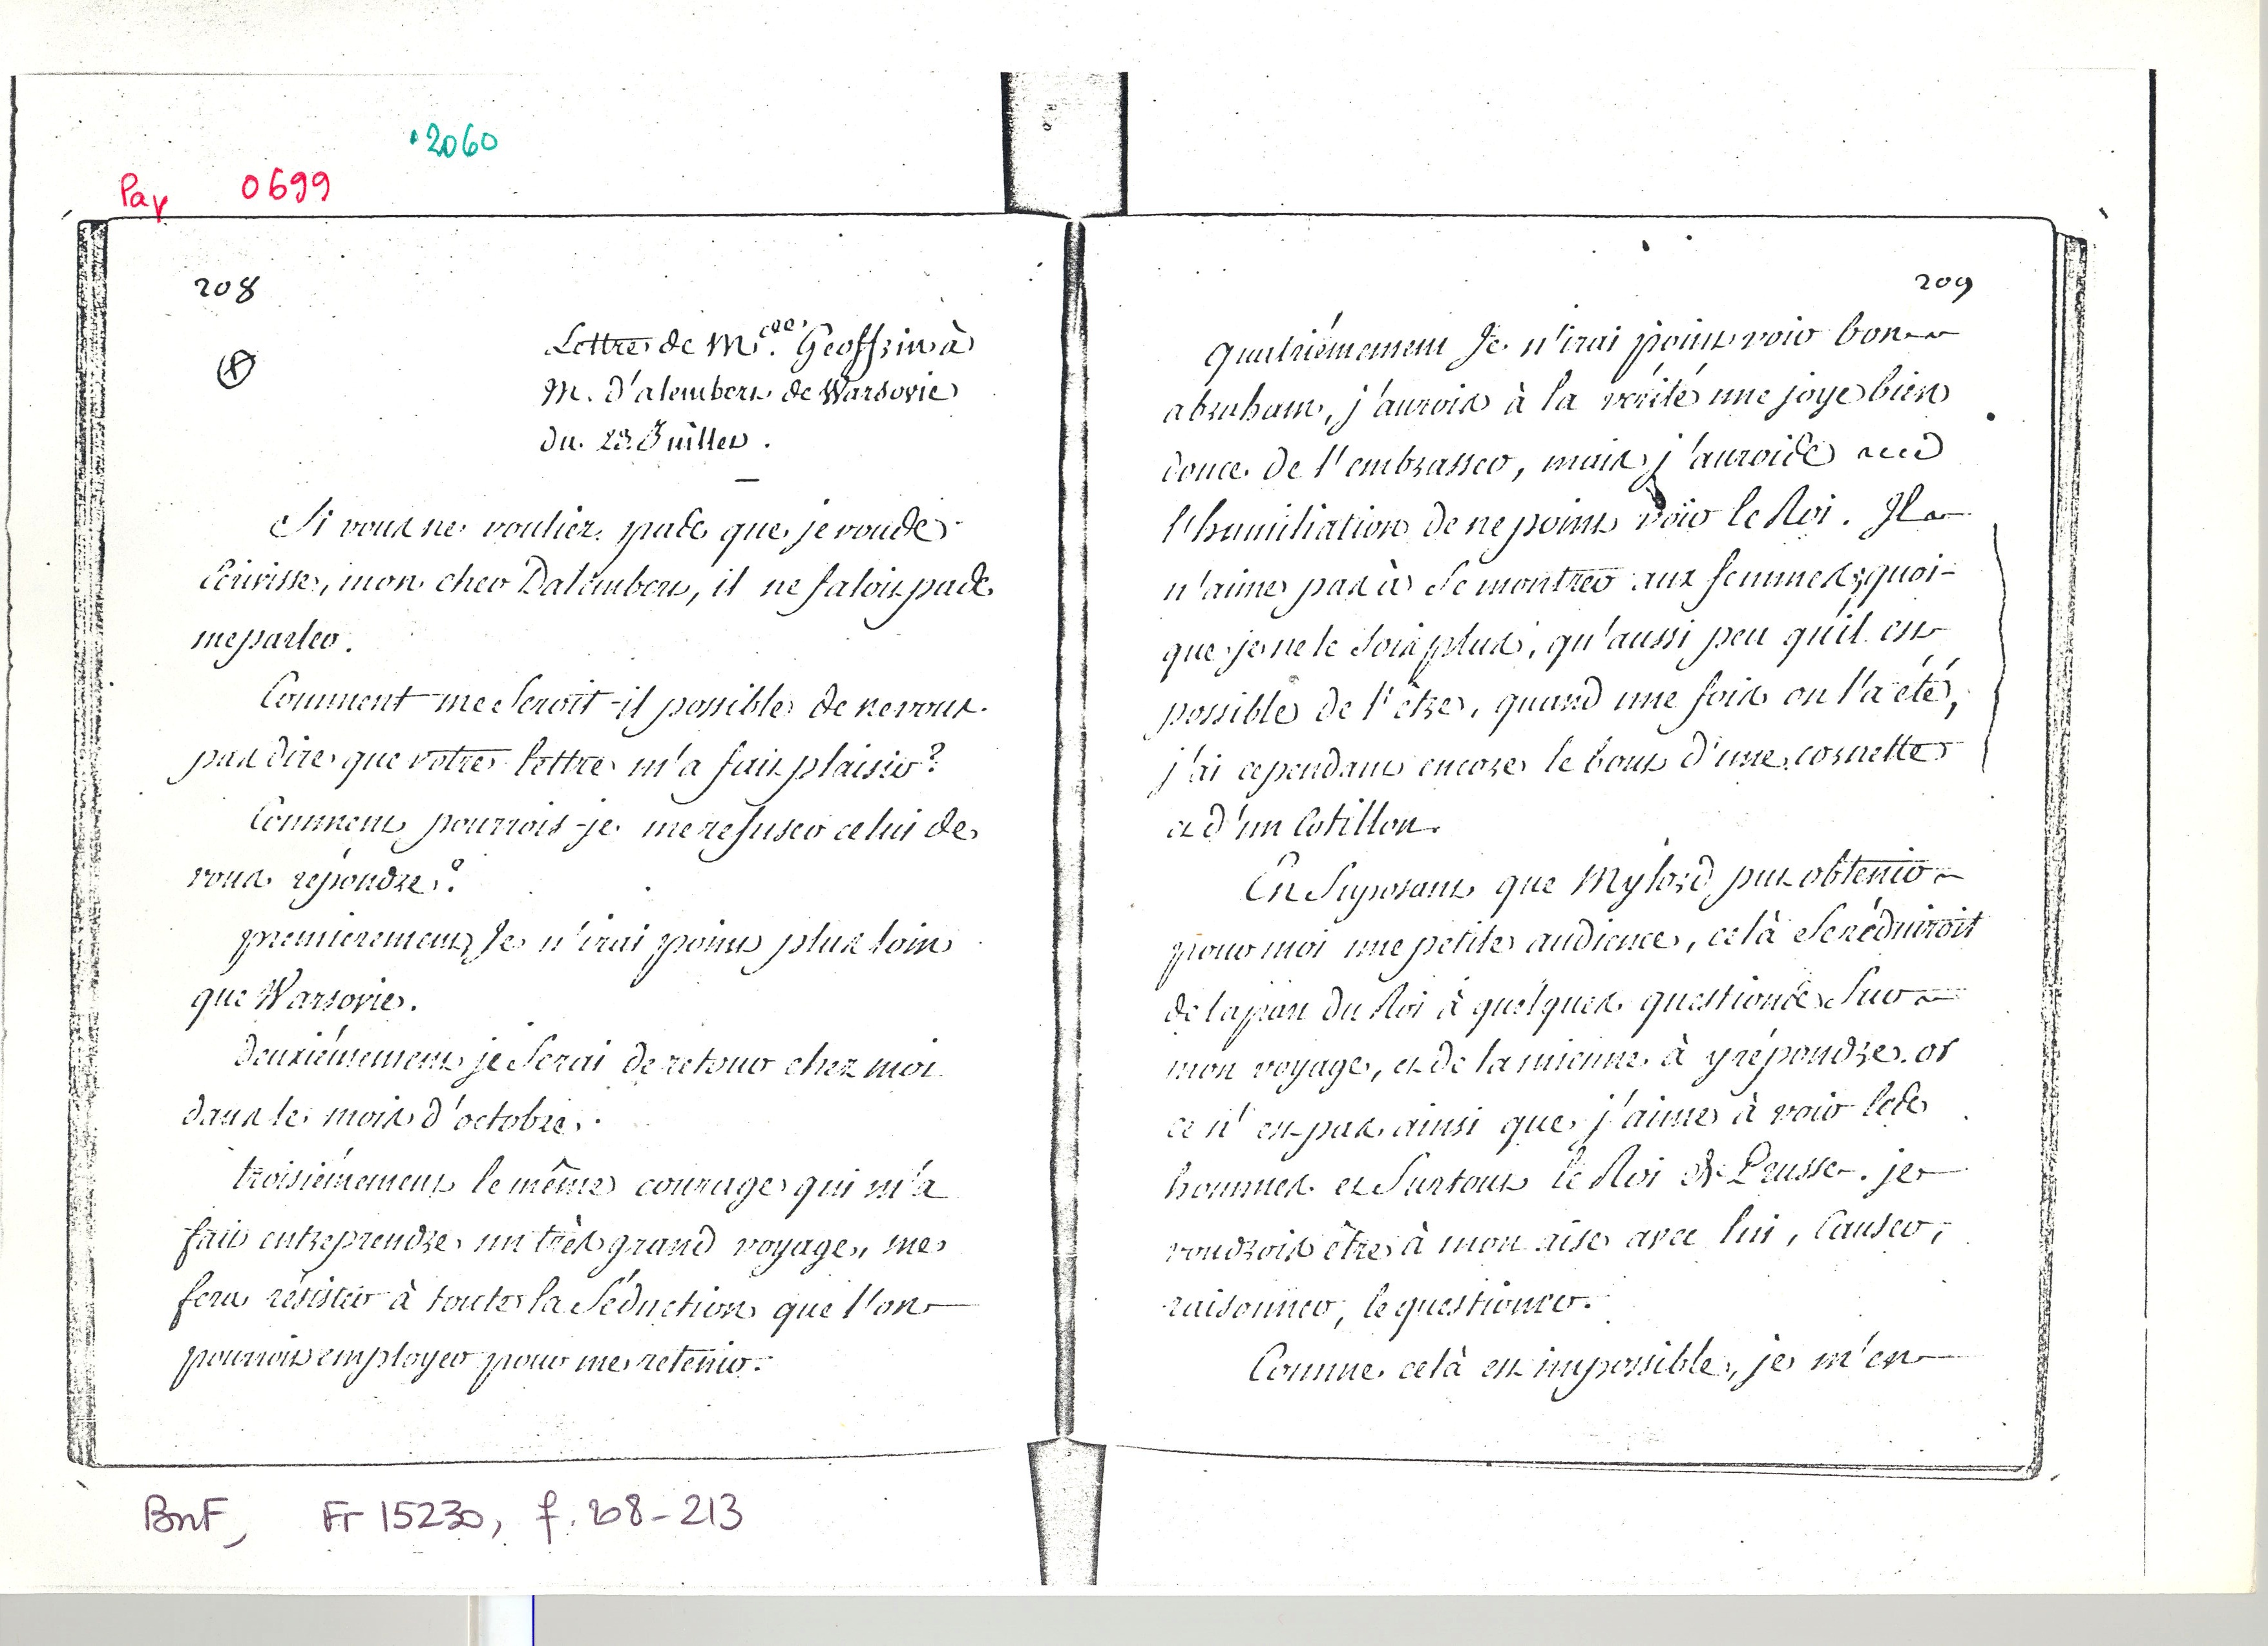 .2060
Pay 0699
208
Lettre de Me. Geoffrin à
M. d'alembert de Warsovie
du 28. Juillet.
Si vous ne vouliez pas que je vous
écrivisse, mon cher Dalembert, il ne faloit pas
me parler.
Comment me seroit-il possible de ne vous
pas dire que votre lettre m'a fait plaisir?
Comment pourrois-je me refuser celui de
vous répondre?
premierement Je n'irai point plus loin
que Warsovie.
deuxiémement je serai de retour chez moi
dans le mois d'octobre.
troisiémement le même courage qui m'a
fait entreprendre un très grand voyage, me
fera résister à toute la Séduction que l'on
pourroit employer pour me retenir.
209
quatriémement Je n'irai point voir bon
abraham, j'aurois à la vérité une joye bien
douce de l'embrasser, mais j'aurois
l'humiliation de ne point voir le Roi. Il
n'aime pas à se montrer aux femmes; quoi-
que je ne le sois plus, qu'aussi peu qu'il est
possible de l'être, quand une fois on l'a été,
j'ai cependant encore le bout d'une cornette
et d'un Cotillon.
En Suposant que Mylord put obtenir
pour moi une petite audience, celà se réduiroit
de la part du Roi à quelques questions sur
mon voyage, et de la mienne à y répondre. or
ce n'est pas ainsi que j'aime à voir les
hommes et surtout le Roi de Prusse. je
voudrois être à mon aise avec lui, Causer,
raisonner, le questionner.
Comme celà est impossible, je m'en
BnF, Fr 15230, f. 208-213